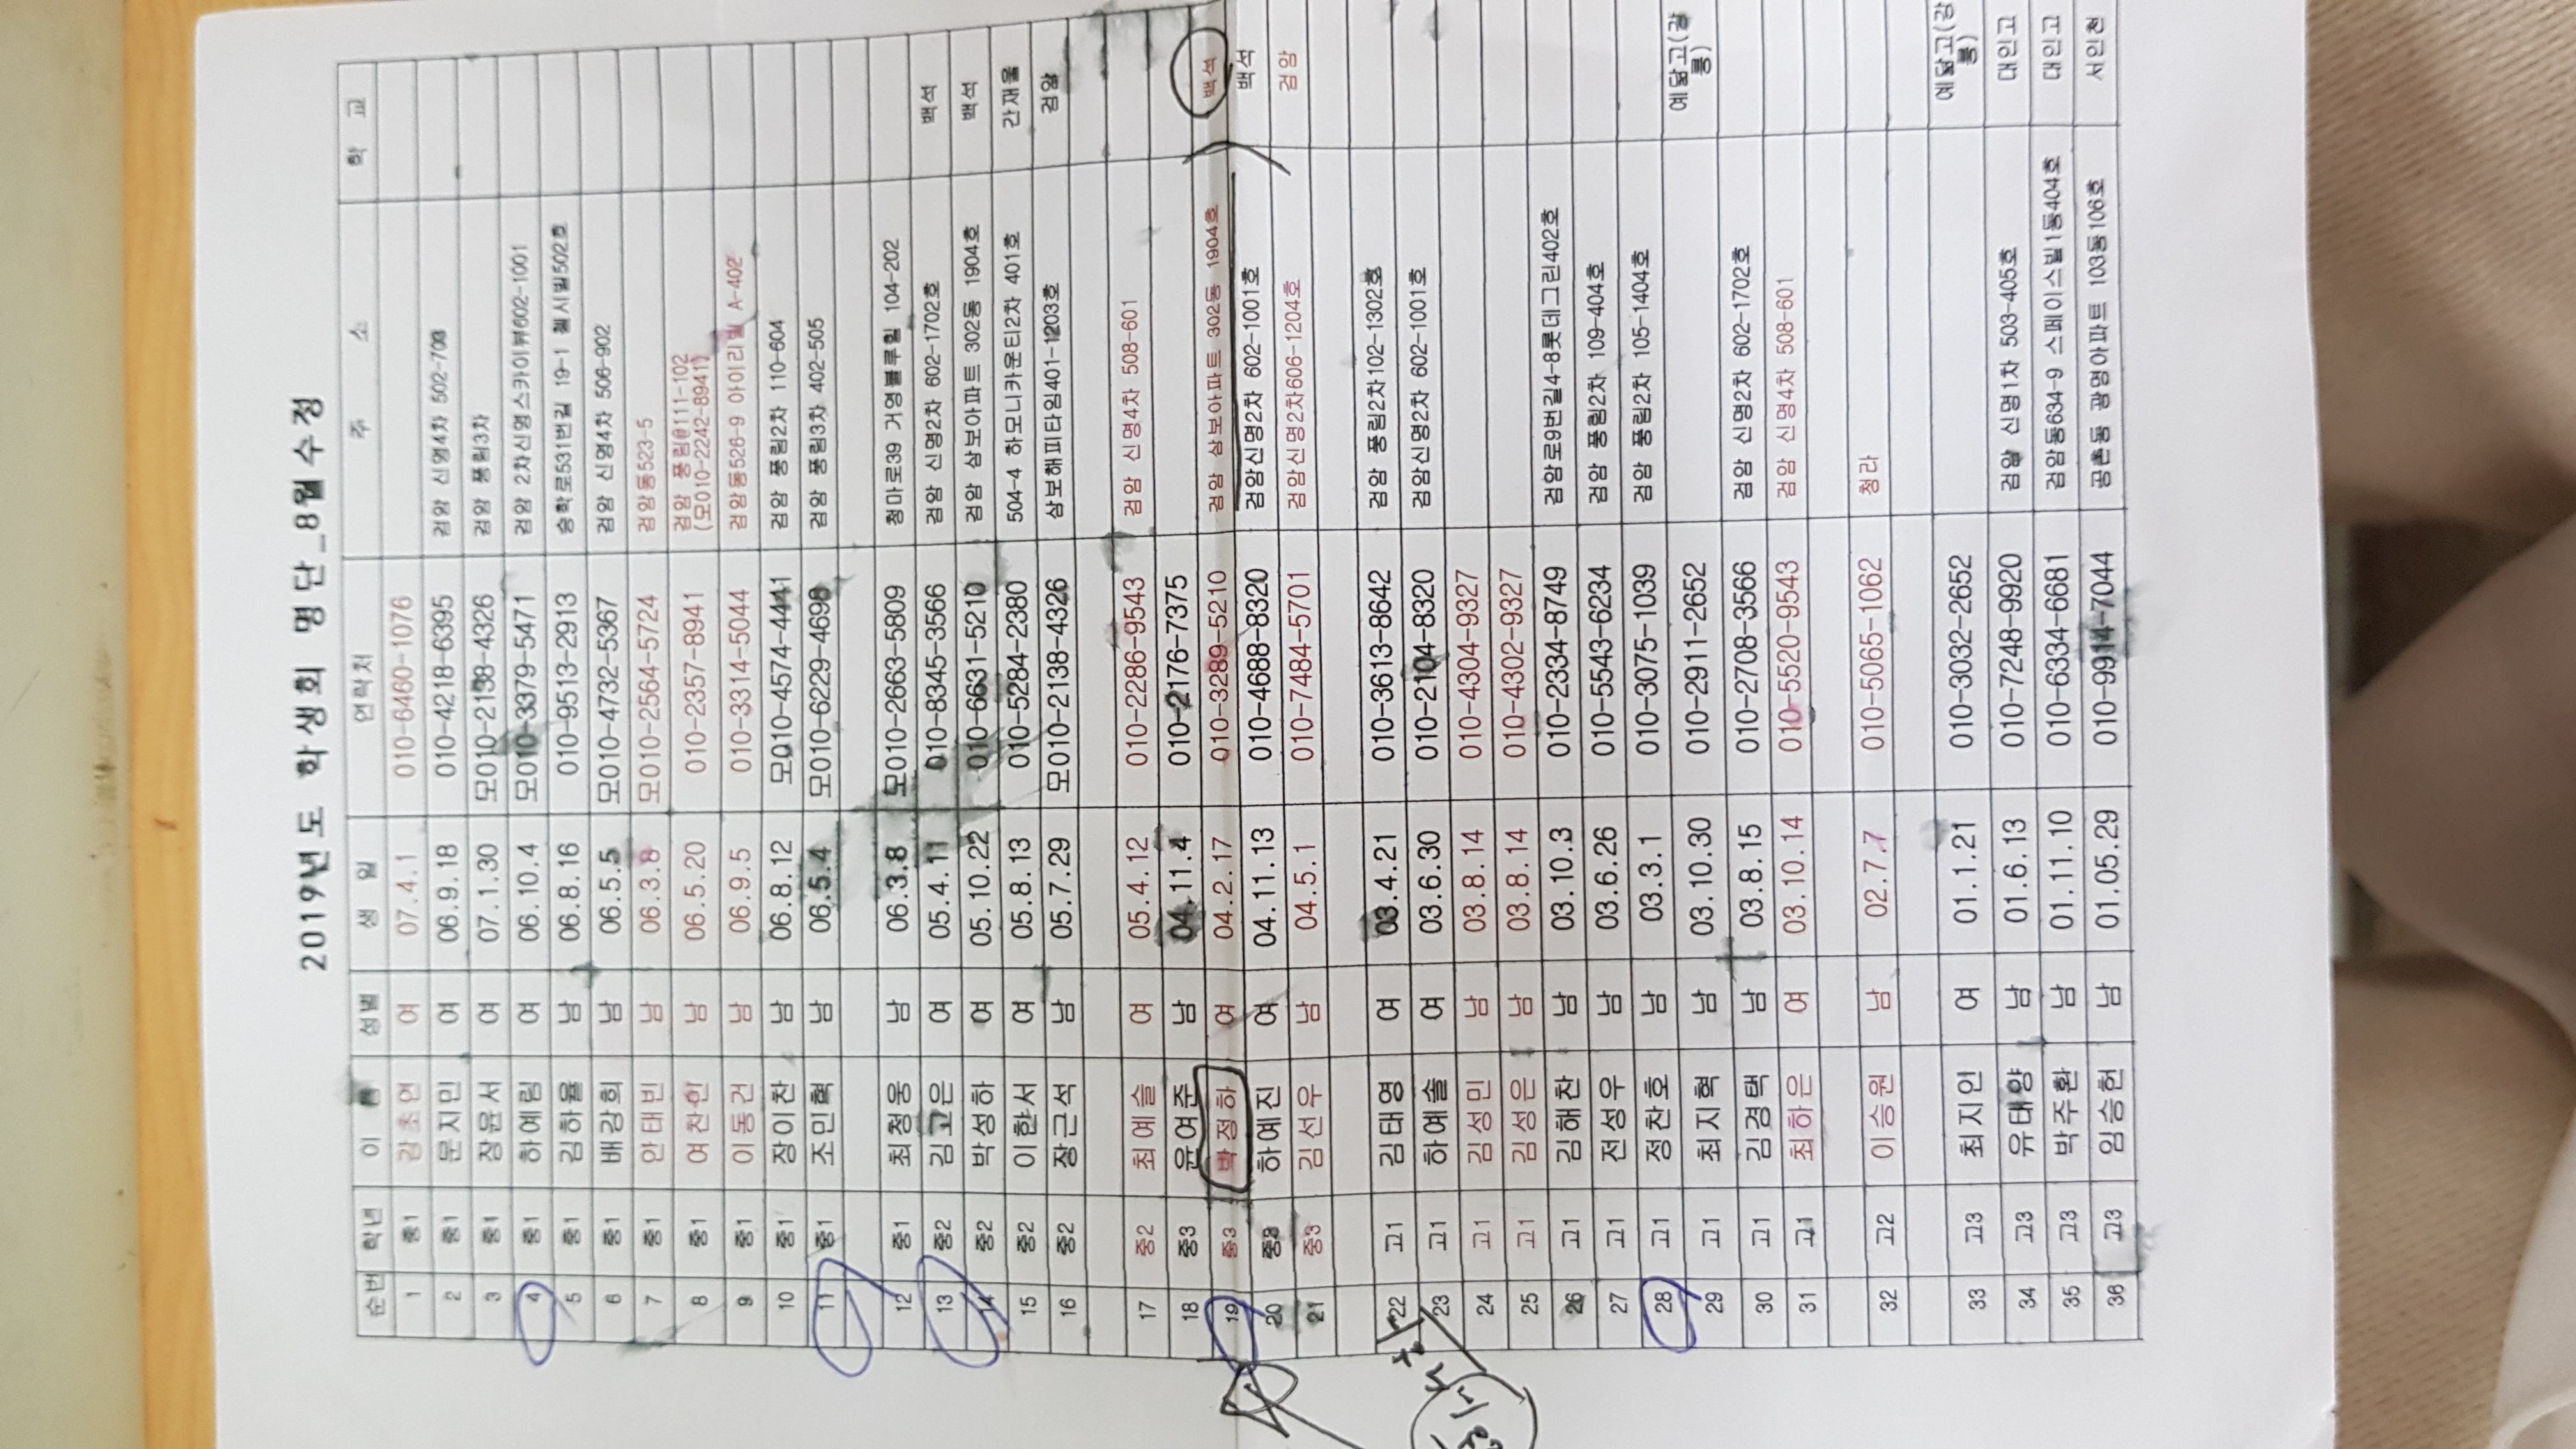 2019년도 학생회 명단_8월수정
순번 학년 이 름 성별 생 일 연락처 주 소 학 교
1 중1 김초연 여 07.4.1 010-6460-1076
2 중1 문지민 여 06.9.18 010-4218-6395 검암 신명4차 502-703
3 중1 장윤서 여 07.1.30 모010-2138-4326 검암 풍림3차
4 중1 하예림 여 06.10.4 모010-3379-5471 검암 2차신명스카이뷰602-1001
5 중1 김하율 남 06.8.16 010-9513-2913 승학로531번길 19-1 웰시빌502호
6 중1 배강희 남 06.5.5 모010-4732-5367 검암 신명4차 506-902
7 중1 안태빈 남 06.3.8 모010-2564-5724 검암동523-5
8 중1 여찬인 남 06.5.20 010-2357-8941 검암 풍림@111-102
(모010-2242-8941)
9 중1 이동건 남 06.9.5 010-3314-5044 검암동526-9 아이리빌 A-402
10 중1 장이찬 남 06.8.12 모010-4574-4441 검암 풍림2차 110-604
11 중1 조민혁 남 06.5.4 모010-6229-4698 검암 풍림3차 402-505
12 중1 최정웅 남 06.3.8 모010-2663-5809 청마로39 거영블루힐 104-202
13 중2 김고은 여 05.4.11 010-8345-3566 검암 신명2차 602-1702호 백석
14 중2 박성하 여 05.10.22 010-6631-5210 검암 삼보아파트 302동 1904호 백석
15 중2 이한서 여 05.8.13 010-5284-2380 504-4 하모니카운티2차 401호 간재울
16 중2 장근석 남 05.7.29 모010-2138-4326 삼보해피타임401-1203호 검암
17 중2 최예슬 여 05.4.12 010-2286-9543 검암 신명4차 508-601
18 중3 윤여준 남 04.11.4 010-2176-7375
19 중3 박정하 여 04.2.17 010-3289-5210 검암 삼보아파트 302동 1904호 백석
20 중3 하예진 여 04.11.13 010-4688-8320 검암신명2차 602-1001호 백석
21 중3 김선우 남 04.5.1 010-7484-5701 검암신명2차606-1204호 검암
22 고1 김태영 여 03.4.21 010-3613-8642 검암 풍림2차102-1302호
23 고1 하예솔 여 03.6.30 010-2104-8320 검암신명2차 602-1001호
24 고1 김성민 남 03.8.14 010-4304-9327
25 고1 김성은 남 03.8.14 010-4302-9327
26 고1 김해찬 남 03.10.3 010-2334-8749 검암로9번길4-8롯데그린402호
27 고1 전성우 남 03.6.26 010-5543-6234 검암 풍림2차 109-404호
28 고1 정찬호 남 03.3.1 010-3075-1039 검암 풍림2차 105-1404호
29 고1 최지혁 남 03.10.30 010-2911-2652 예닮고(강
릉)
30 고1 김경택 남 03.8.15 010-2708-3566 검암 신명2차 602-1702호
31 고1 최하은 여 03.10.14 010-5520-9543 검암 신명4차 508-601
32 고2 이승원 남 02.7.7 010-5065-1062 청라
33 고3 최지인 여 01.1.21 010-3032-2652 예닮고(강
릉)
34 고3 유태양 남 01.6.13 010-7248-9920 검암 신명1차 503-405호 대인고
35 고3 박주환 남 01.11.10 010-6334-6681 검암동634-9 스페이스빌1동404호 대인고
36 고3 임승헌 남 01.05.29 010-9914-7044 공촌동 광명아파트 103동106호 서인천